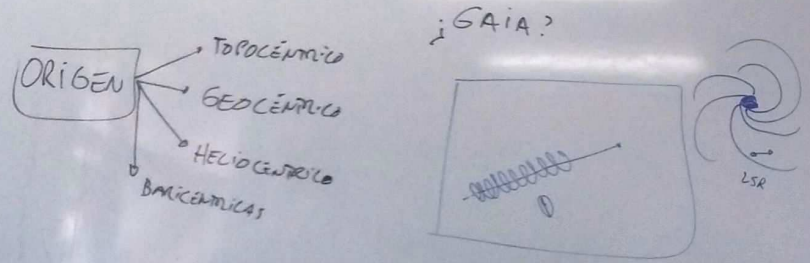 ORIGEN
TOPOCÉNTRICO
GEOCÉNTRICO
HELIOCÉNTRICO
BARICÉNTRICAS
¿GAIA?
LSR